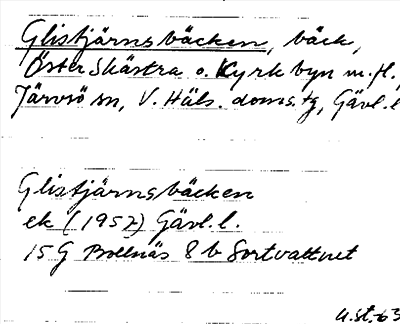 Glistjärnsbäcken, bäck,
Öster Skästra o. Kyrkbyn m.fl.,
Järvsö sn, V. Häls. doms. tg, Gävl. l
Glistjärnsbäcken
ek (1957) Gävl. l.
15G Bollnäs 8 b Sortvattnet
U.St.-63